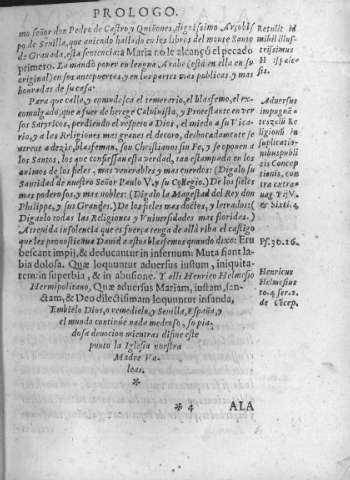 PROLOGO.
mo señor don Pedro de Castro y Quiñones, dignissimo Arçobis
po de Seuilla, que auiendo hallado en los libros del monte Santo
de Granada, esta sentencia: a Maria no le alcançò el pecado
primero. La mandò poner en lengua Arabe (està en ella en su
original) en sus antepuertas, y en las partes mas publicas, y mas
honradas de su casa.
Retulit id
mihi Illus-
trissimus
Para que calle, y
el temerario, el blasfemo, el ex
comulgado, que a fuer de herege Caluinista, y Protestante en ver
sos Satyricos, perdiendo el respeto a Dios, el miedo a su Vica-
rio, y a las Religiones mas graues el decoro, desbocadamente se
atreue a dezir, blasfeman, son Christianos sin Fe, y se oponen a
los Santos, los que confiessan esta verdad, tan estampada en los
animos de los fieles, mas venerables, y mas cuerdos: (Digalo su
Santidad de nuestro Señor Paulo V. y su Colegio.) De los fieles
mas poderosos, y mas nobles: (Digalo la Magestad del Rey don
Phelippe, y sus Grandes.) De los fieles mas doctos, y letrados:
(Diganlo todas las Religiones, y Vniuersidades mas floridas.)
Atreuida insolencia que es fuerça tenga de allà riba el castigo
que les pronostica Dauid a estos blasfemos quando dixo: Eru
bescant impij, & deducantur in infernum: Muta fiant la-
bia dolosa. Quæ loquuntur aduersus iustum, iniquita-
tem: in superbia, & in abusione. Y alli Henrico Helmesio
Hermipolitano, Quæ aduersus Mariam, iustam, san-
ctam, & Deo dilectissimam loquuntur infanda,
Aduersus
Religiondi in
bus publi
cis Concep
tionis, con
& Sixti 4.
Ps. 30. 16.
Henricus
Helmesius
Embielo Dios, o remedielo, y Seuilla, España, y
el mundo continùe nada medroso, su pia-
dosa deuocion mientras difine este
punto la Iglesia nuestra
Madre Va-
leas.
*
* 4
ALA